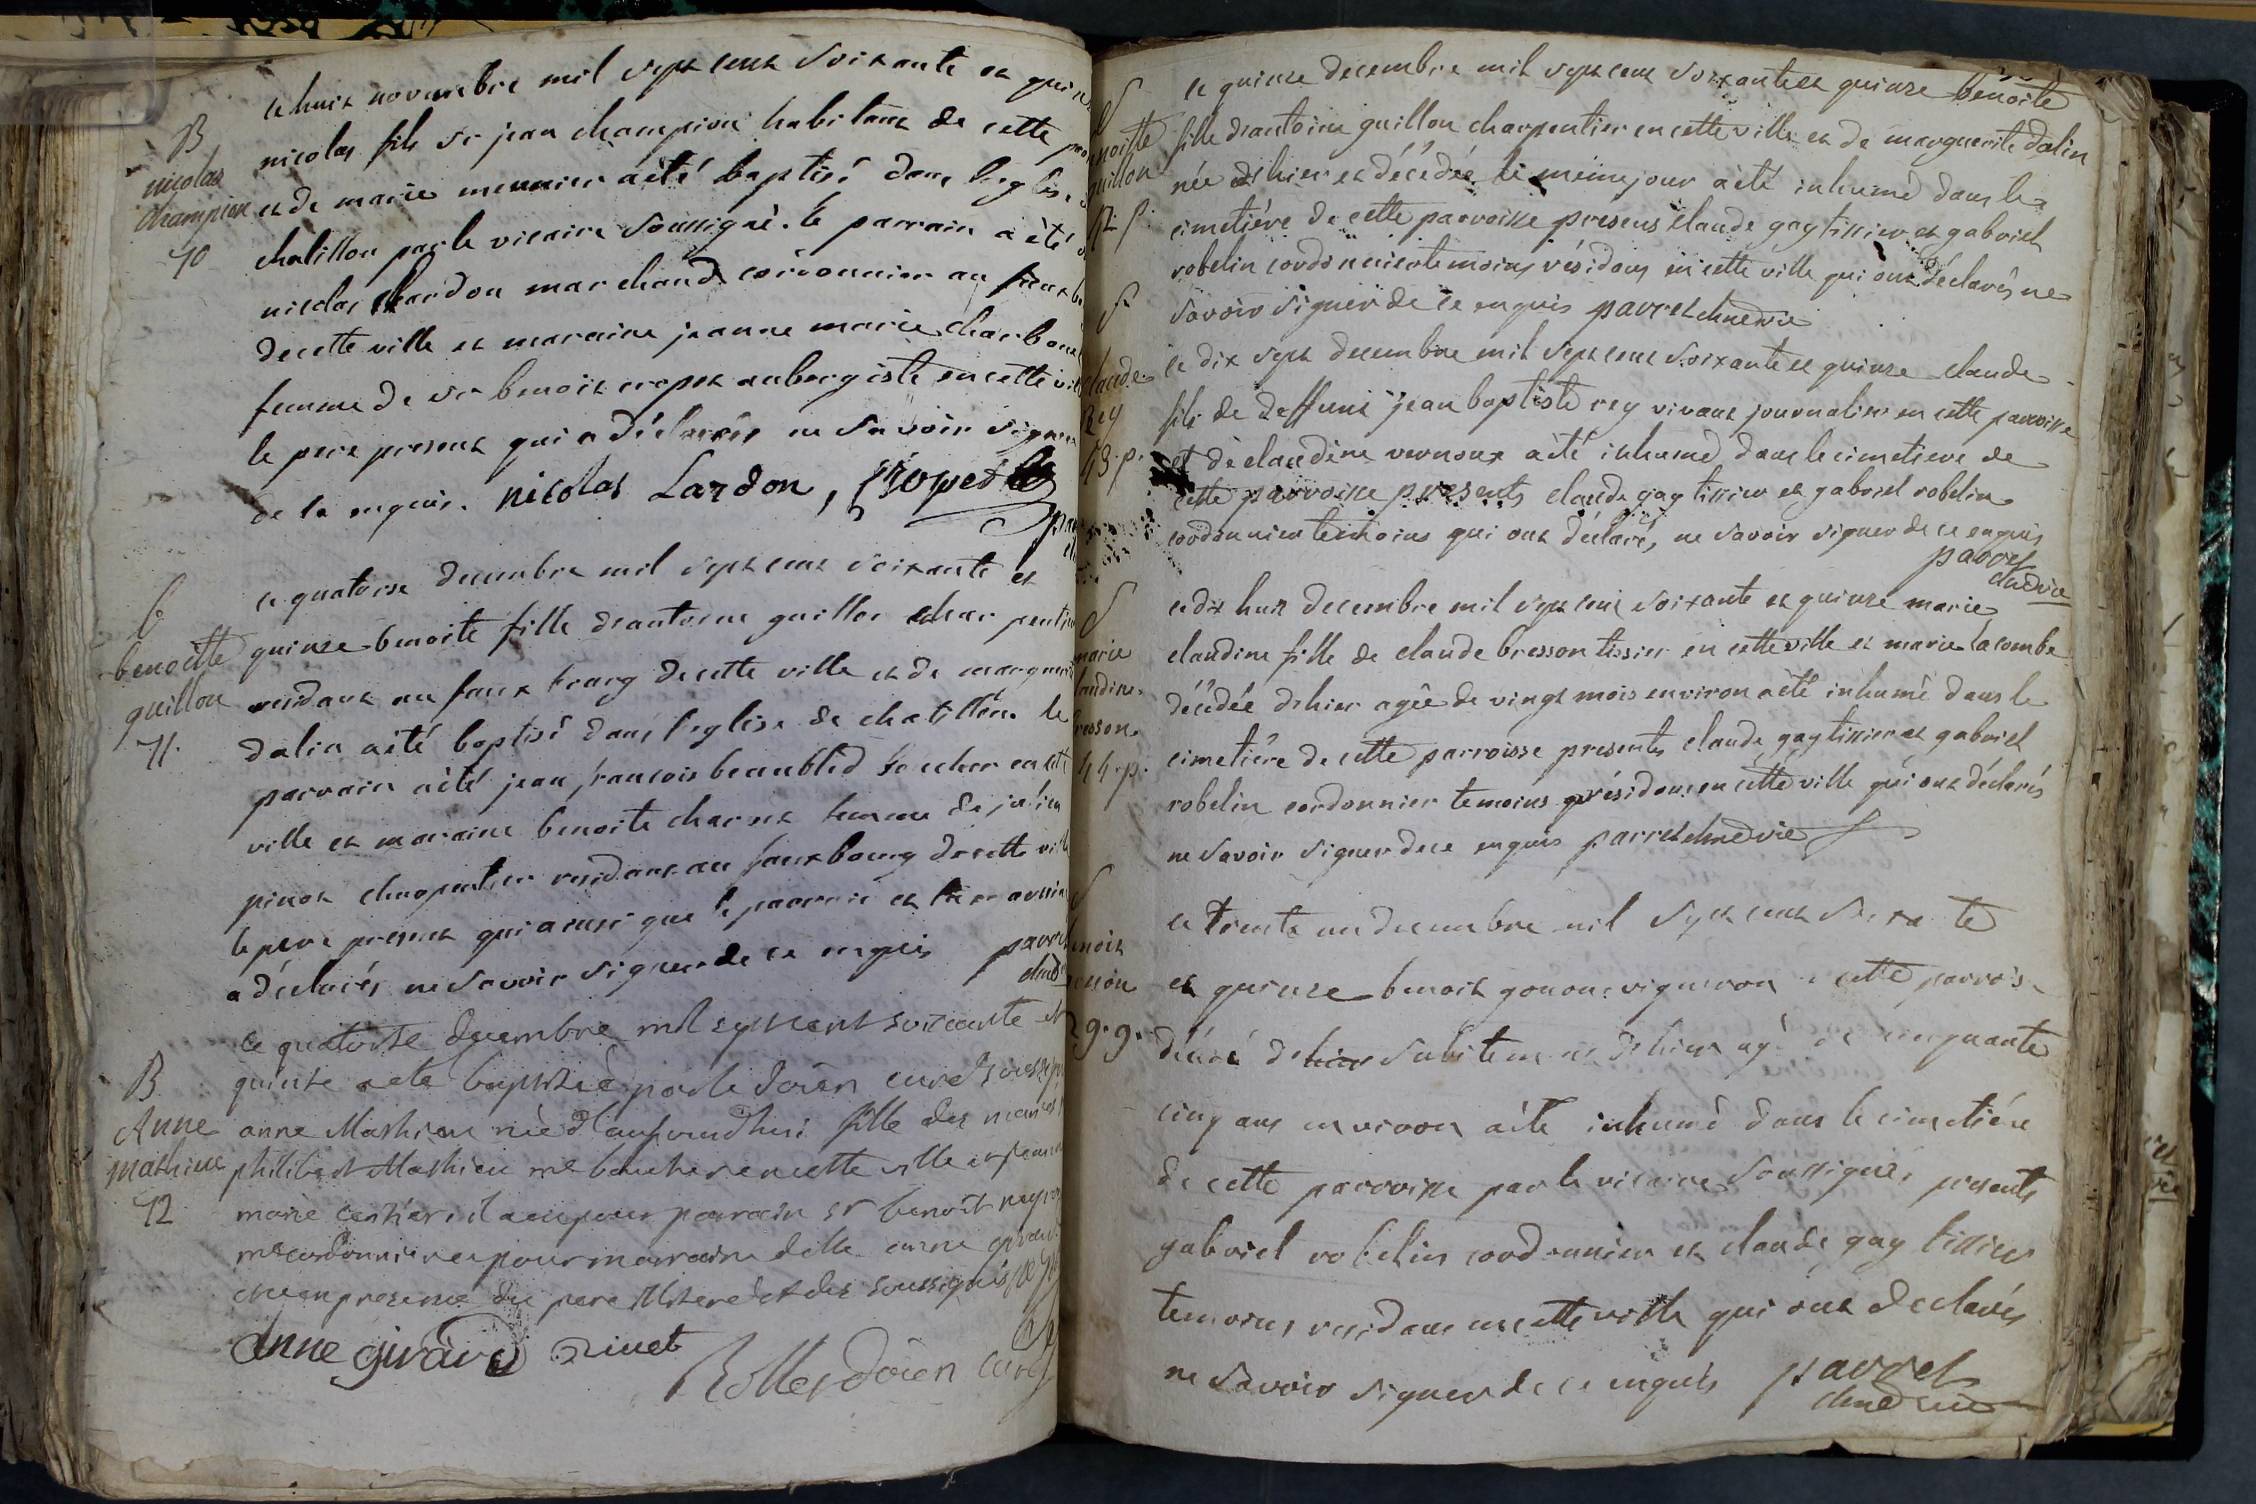 B
nicolas
champion
70
ce huit novembre mil sept cent soixante et quinze
nicolas fils de jean champion habitant de cette
et de marie meunier a été baptisé dans l'eglise
chatillon par le vicaire soussigné. le parrain a été
nicolas Lardon marchand cordonnier au faux
de cette ville et maraine jeanne marie charbonel
femme de sr benoit cropet aubergiste en cette ville
le pere present qui a déclarés ne savoir signer
de ce enquis. nicolas Lardon, Cropet
b
benoitte
guillon
71.
ce quatorse decembre mil sept cent soixante et
quinse benoite fille d'antoine guillon charpentier
residant au faux bourg de cette ville et de marguerite
dalin a été baptisé dans l'eglise de chatillon. le
parrain a été jean francois beaublid en cette
ville et maraine benoite charvet femme de julien
pinot charpentier residant au fauxbourg de cette ville
le pere present qui ainsi que le parrain et la maraine
a déclarés ne savoir signer de ce enquis parret
B
Anne
mathieu
72
ce quatorse decembre mil sept cent soixante et
quinse a ete baptisée par le doien curé soussigné
anne Mathieu née d'aujourd'huy fille des mariés
philibert Mathieu me boucher en cette ville et jeanne
marie il a eu pour parrain sr benoit
me cordonnier et pour marraine delle anne girard
en presence du pere illiteré et des soussignés
Anne girard Rinet
doien curé
S
benoitte
guillon
42. p.
ce quinse decembre mil sept cent soixante et quinse benoite
fille d'antoine guillon charpentier en cette ville et de marguerite dalin
née d'hier et décédée le même jour a été inhumé dans le
cimetiére de cette parroisse presens claude gay tissier et gabriel
robelin cordonnier temoins résidans en cette ville qui ont déclarés ne
savoir signer de ce enquis parret chne vic
S
claude
Rey
43. p.
ce dix sept decembre mil sept cent soixante et quinse claude
fils de deffunt jean baptiste rey vivant journalier en cette parroisse
et de claudine vernoux a été inhumé dans le cimetiere de
cette parroisse presents claude gay tissier et gabriel robelin
cordonnier temoins qui ont déclaré, ne savoir signer de ce enquis
parret
chne vic
S
marie
claudine
bresson
44. p.
ce dix huit decembre mil sept cent soixante et quinse marie
claudine fille de claude bresson tissier en cette ville et marie lacombe
décédée d'hier agée de vingt mois environ a été inhumé dans le
cimetiére de cette parroisse presents claude gay tissier et gabriel
robelin cordonnier temoins résidans en cette ville qui ont déclarés
ne savoir signer de ce enquis parret chne vic
S
benoit
gonon
29. g.
ce trente un decembre mil sept cent soixante
et quinse benoit gonon vigneron cette parroisse
décédé subitement d'hier agé de cinquante
cinq ans environ a été inhumé dans le cimetiére
de cette parroisse par le vicaire soussigné, presents
gabriel robelin cordonnier et claude gay tissier
temoins residans en cette ville qui ont declarés
ne savoir signer de ce enquis parret
chne vic